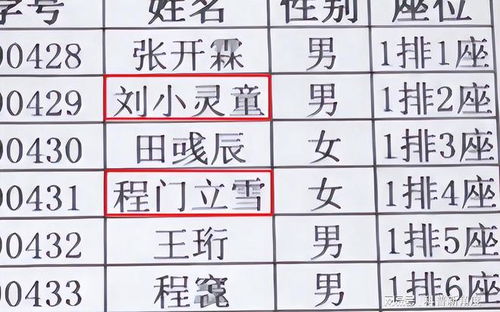 学号 姓名 性别 座位
00428 张开霖 男 1排1座
00429 刘小灵童 男 1排2座
00430 田彧辰 女 1排3座
00431 程门立雪 女 1排4座
00432 王珩 男 1排5座
00433 程 男 1排6座